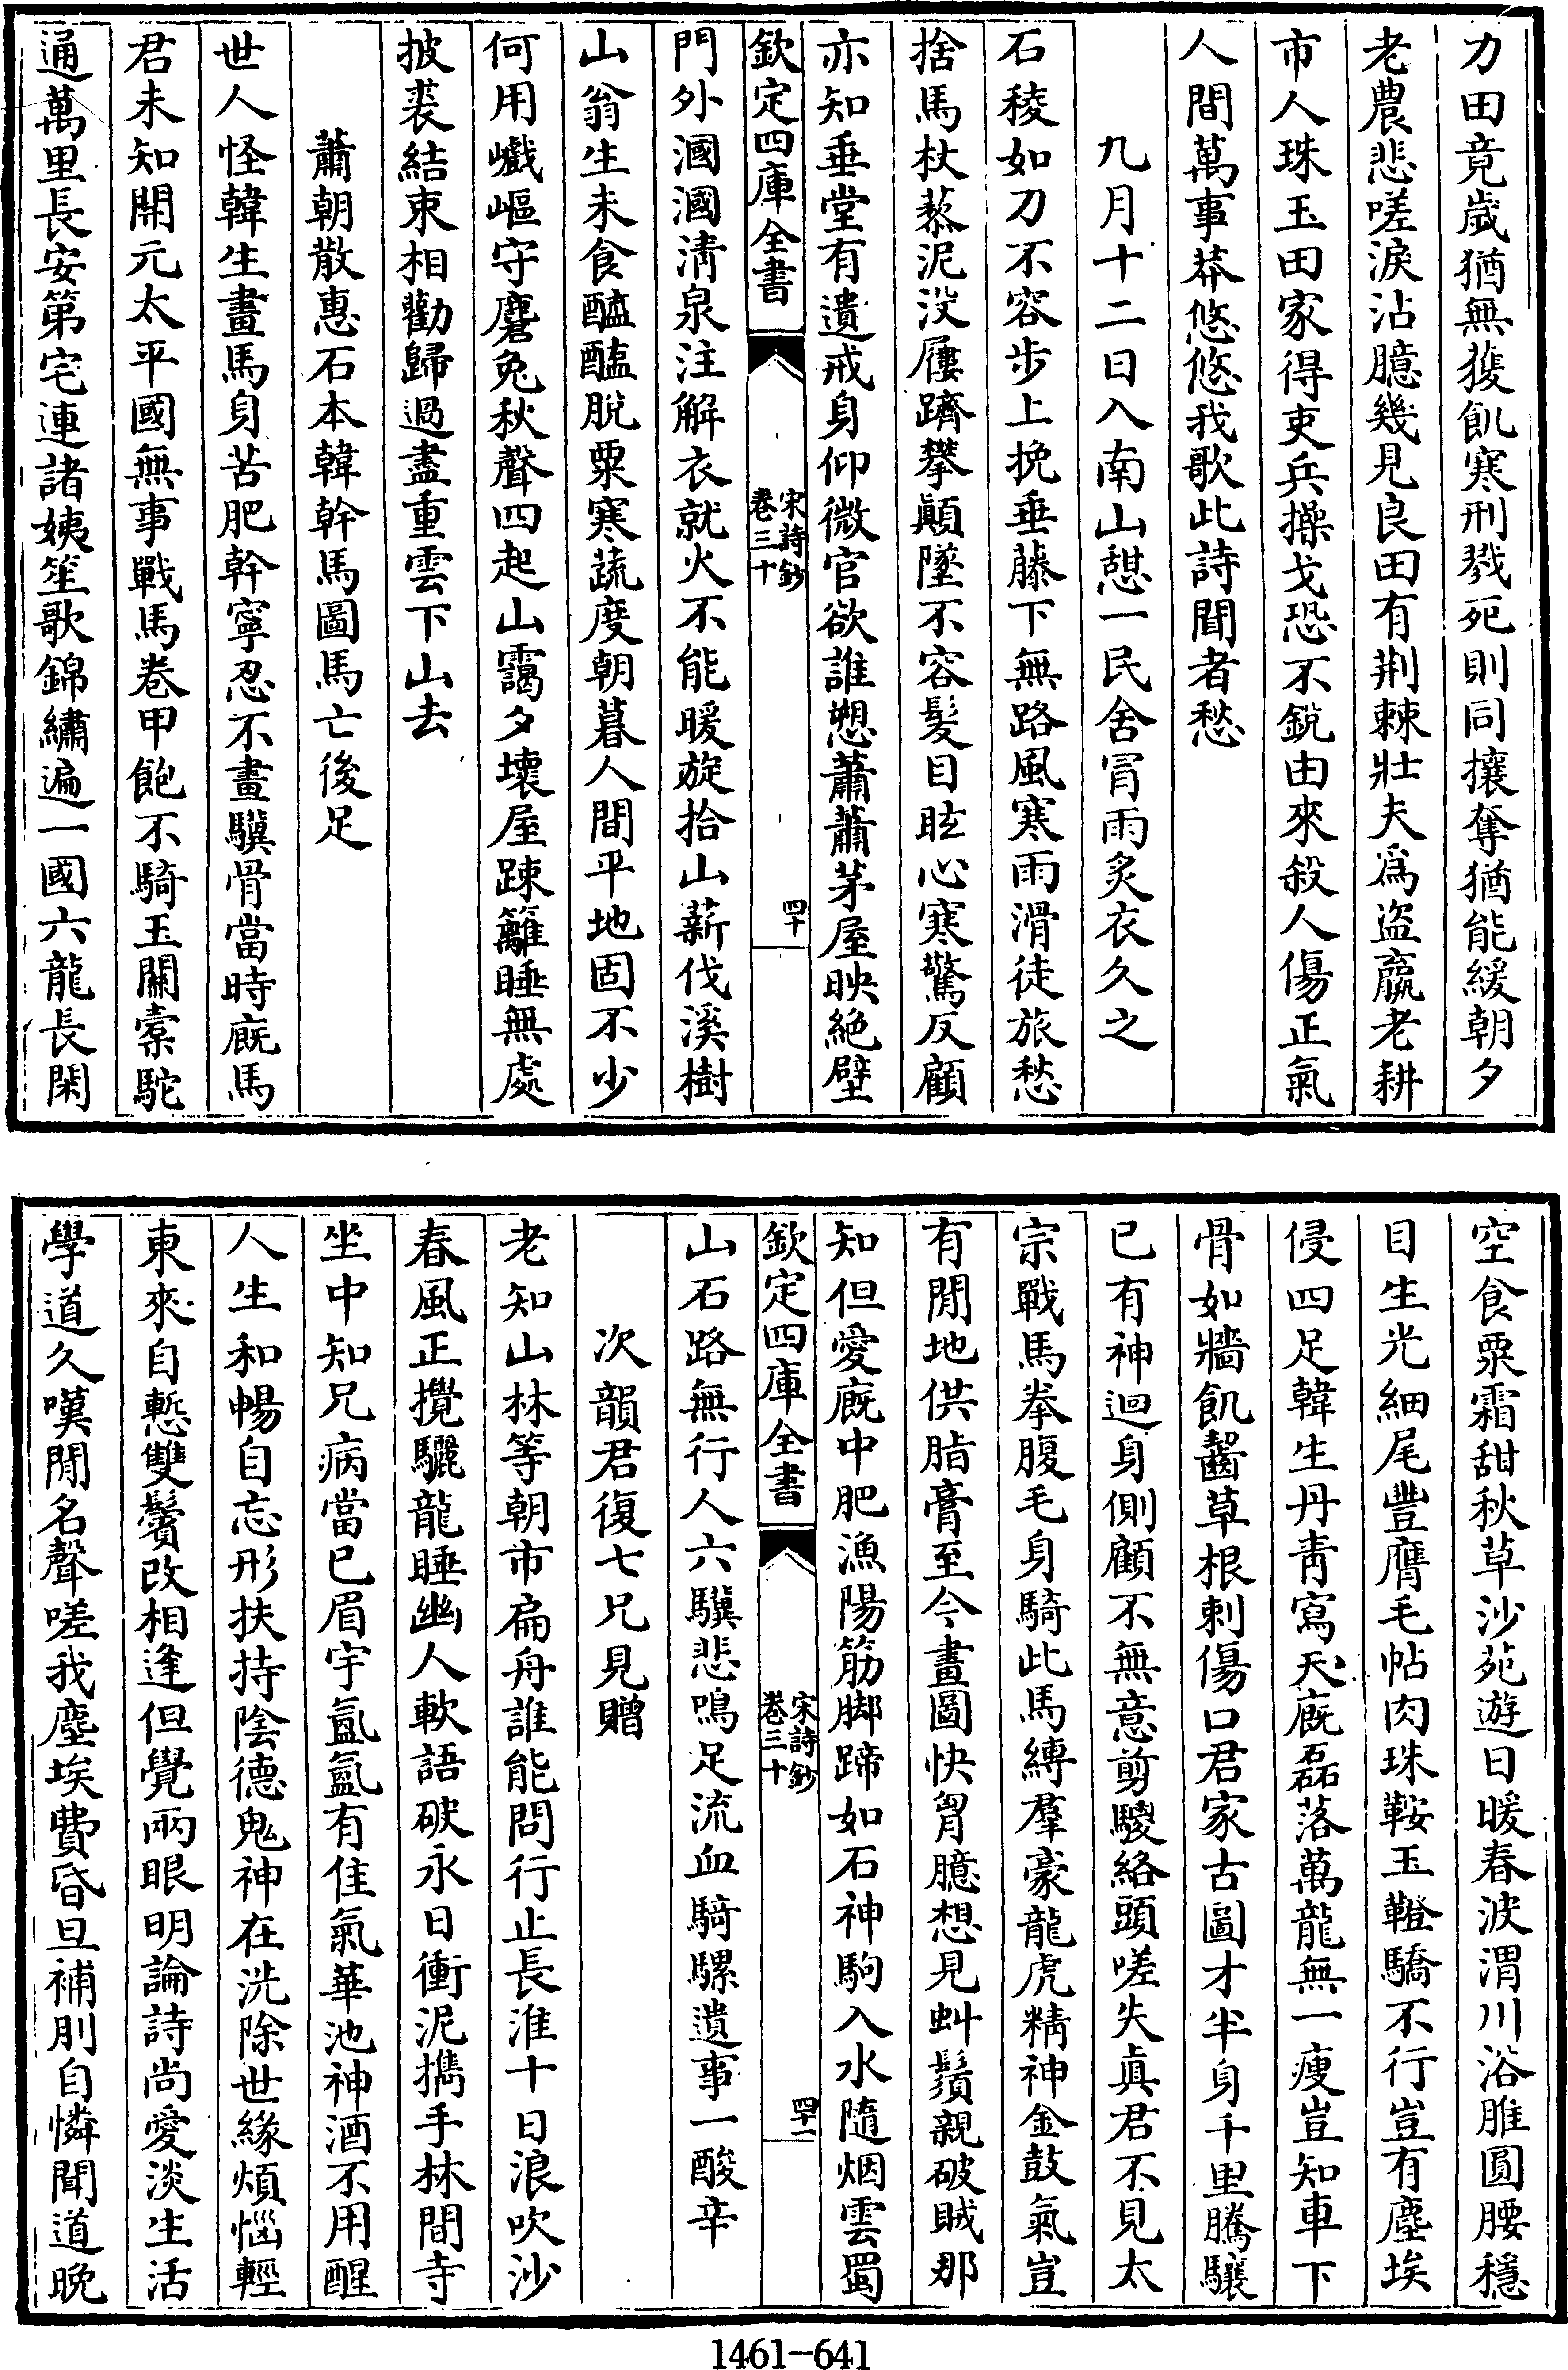 力田竟歲猶無獲飢寒刑戮死則同攘奪猶能緩朝夕
老農悲嗟淚沾臆幾見良田有荆棘壯夫爲盗羸老耕
市人珠玉田家得吏兵操戈恐不銳由來殺人傷正氣
人間萬事莽悠悠我歌此詩聞者愁
九月十二日入南山憇一民舍冐雨炙衣久之
石稜如刀不容步上挽垂藤下無路風寒雨滑徒旅愁
捨馬杖藜泥没屨躋攀顚墜不容髪目眩心寒驚反顧
亦知垂堂有遺戒身仰微官欲誰愬蕭蕭茅屋映絶壁
欽定四庫全書
宋詩鈔
卷三十
四十
門外㶁㶁清泉注解衣就火不能暖旋拾山薪伐溪樹
山翁生未食醯醢脫粟寒蔬度朝暮人間平地固不少
何用巇嶇守麏兔秋聲四起山靄夕壞屋踈籬睡無處
披裘結束相勸歸過盡重雲下山去
蕭朝散惠石本韓幹馬圖馬亡後足
世人怪韓生畫馬身苦肥幹寧忍不畫驥骨當時廐馬
君未知開元太平國無事戰馬卷甲飽不騎玉關橐駝
通萬里長安第宅連諸姨笙歌錦繡遍一國六龍長閑
空食粟霜甜秋草沙苑遊日暖春波渭川浴脽圓腰穩
目生光細尾豐膺毛帖肉珠鞍玉鞾驕不行豈有塵埃
侵四足韓生丹青寫天廐磊落萬龍無一瘦豈知車下
骨如牆飢齧草根刺傷口君家古圖才半身千里騰驤
已有神迴身側顧不無意剪騣絡頭嗟失眞君不見太
宗戰馬拳腹毛身騎此馬縛羣豪龍虎精神金鼓氣豈
有閒地供脂膏至今畫圖快胷臆想見虯鬚親破賊那
知但愛廐中肥漁陽筋脚蹄如石神駒入水隨烟雲蜀
欽定四庫全書
宋詩鈔
卷三十
四十一
山石路無行人六驥悲鳴足流血騎騾遺事一酸辛
次韻君復七兄見贈
老知山林等朝市扁舟誰能問行止長淮十日浪吹沙
春風正攪驪龍睡幽人軟語破永日衝泥攜手林間寺
坐中知兄病當已眉宇氳氳有佳氣華池神酒不用醒
人生和暢自忘形扶持陰德鬼神在洗除世緣煩惱輕
東來自慙雙鬢改相逢但覺兩眼明論詩尚愛淡生活
學道久嘆閒名聲嗟我塵埃費昏旦補刖自憐聞道晚
1461-641